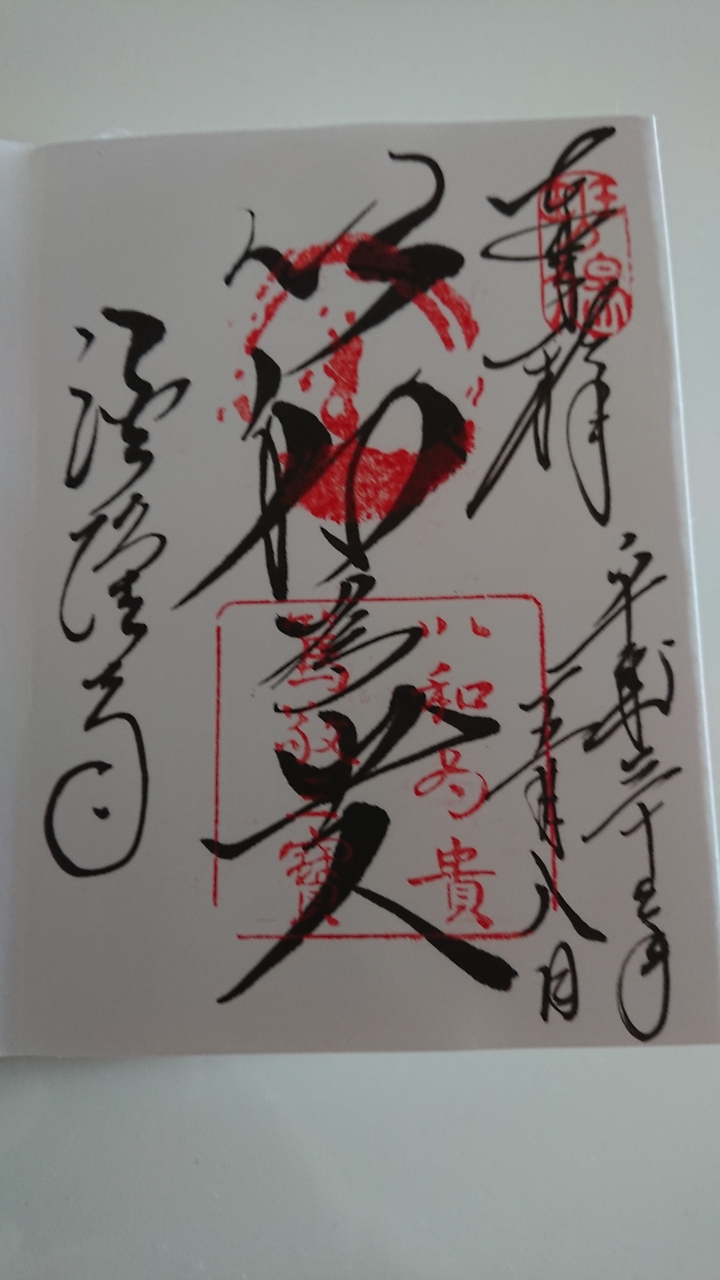 奉拝
平成
五月八日
以和為貴
法隆寺
以和為貴
篤敬三寶